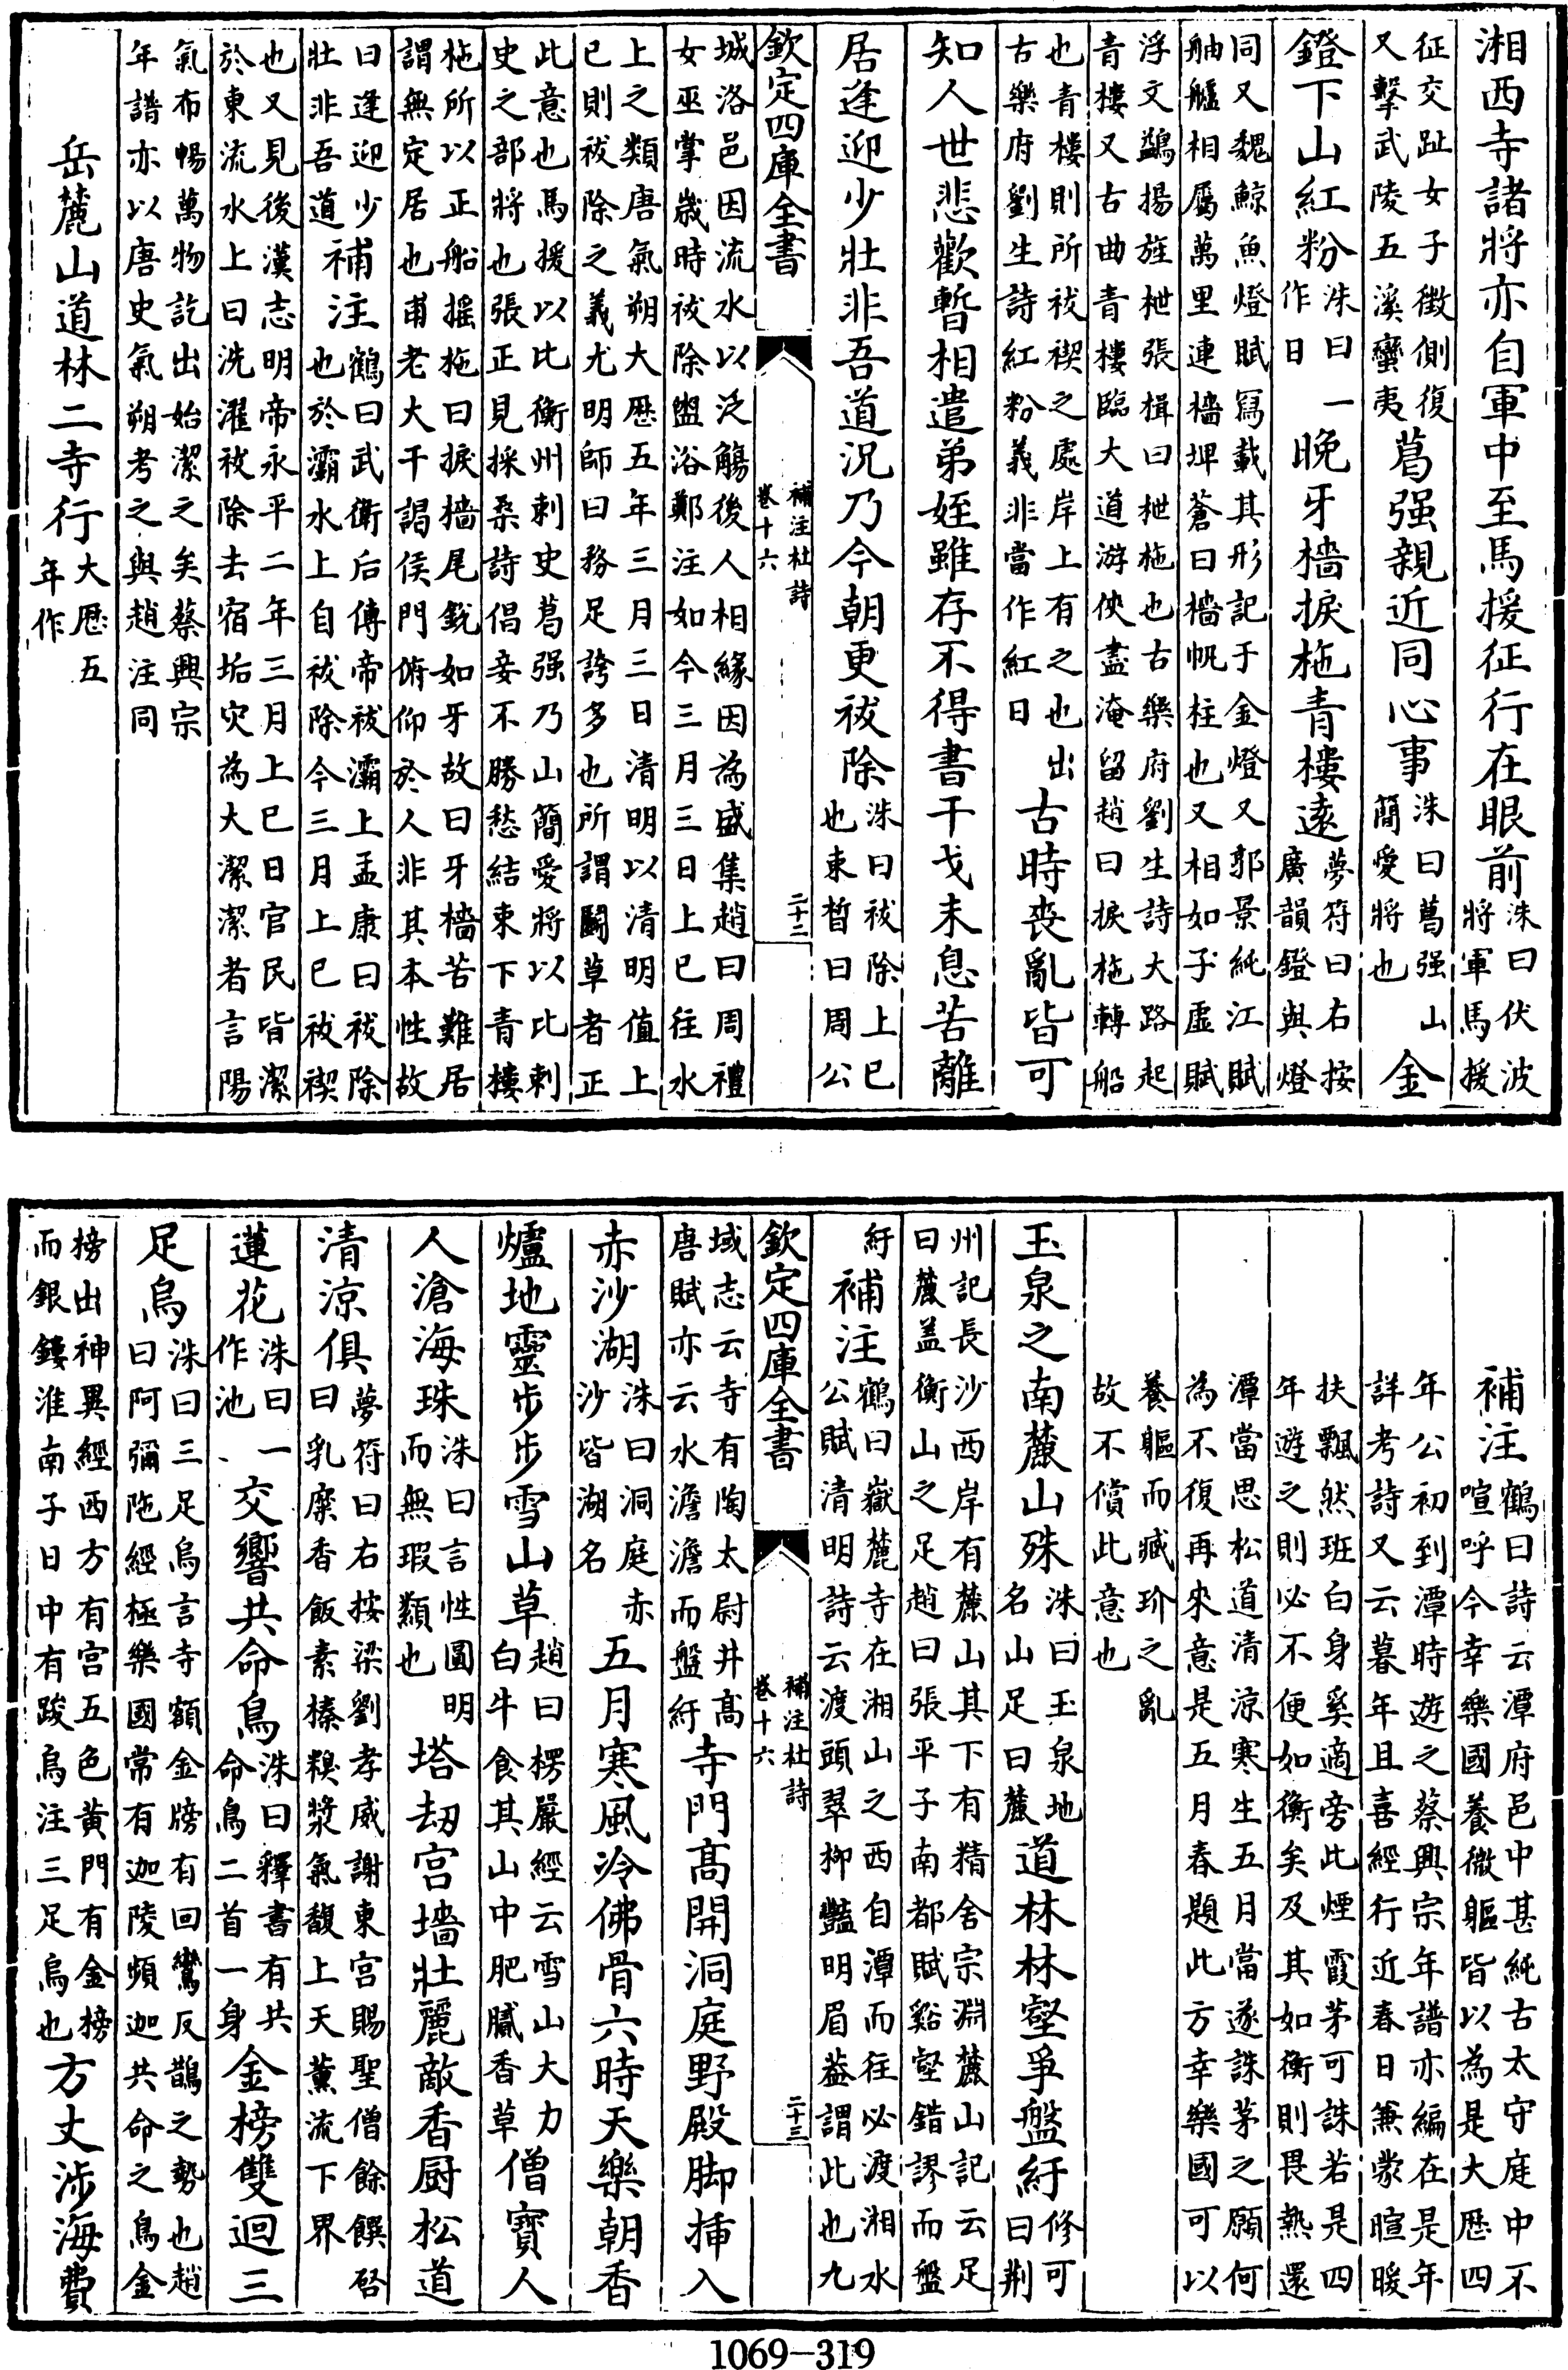 湘西寺諸將亦自軍中至馬援征行在眼前洙曰伏波將軍馬援
征交趾女子徵側復又擊武陵五溪蠻夷葛强親近同心事洙曰葛强山簡愛將也金
鐙下山紅粉洙曰一作日晚牙檣捩柂青樓遠夢符曰右按廣韻鐙與燈
同又魏鯨魚燈賦寫載其形記于金燈又郭景純江賦
舳艫相屬萬里連檣埤蒼曰檣帆柱也又相如子虛賦
浮文鷁揚旌枻張楫曰枻柂也古樂府劉生詩大路起
青樓又古曲青樓臨大道游俠盡淹留趙曰捩柂轉船
也青樓則所祓禊之處岸上有之也出古樂府劉生詩紅粉義非當作紅日古時喪亂皆可
知人世悲歡暫相遣弟姪雖存不得書干戈未息苦離
居逢迎少壯非吾道況乃今朝更祓除洙曰祓除上巳也束晳曰周公
欽定四庫全書
補注杜詩
卷十六
二十二
城洛邑因流水以泛觴後人相緣因為盛集趙曰周禮
女巫掌嵗時祓除釁浴鄭注如今三月三日上巳往水
上之類唐氣朔大厯五年三月三日清明以清明值上
巳則祓除之義尤明師曰務足誇多也所謂鬬草者正
此意也馬援以比衡州刺史葛强乃山簡愛將以比刺
史之部將也張正見採桑詩倡妾不勝愁結束下青樓
柂所以正船摇柂曰捩檣尾銳如牙故曰牙檣苦難居
謂無定居也甫老大干謁侯門俯仰於人非其本性故
曰逢迎少壯非吾道補注鶴曰武衛后傳帝祓灞上孟康曰祓除也於灞水上自祓除今三月上巳祓禊
也又見後漢志明帝永平二年三月上巳日官民皆潔
於東流水上曰洗濯祓除去宿垢灾為大潔潔者言陽
氣布暢萬物訖出始潔之矣蔡興宗
年譜亦以唐史氣朔考之與趙注同
岳麓山道林二寺行大厯五年作
補注鶴曰詩云潭府邑中甚純古太守庭中不喧呼今幸樂國養微軀皆以為是大厯四
年公初到潭時遊之蔡興宗年譜亦編在是年
詳考詩又云暮年且喜經行近春日兼蒙暄暖
扶飄然班白身奚適旁此煙霞茅可誅若是四
年遊之則必不便如衡矣及其如衡則畏熱還
潭當思松道清涼寒生五月當遂誅茅之願何
為不復再來意是五月春題此方幸樂國可以
養軀而臧玠之亂
故不償此意也
玉泉之南麓山殊洙曰玉泉地名山足曰麓道林林壑爭盤紆修可曰荆
州記長沙西岸有麓山其下有精舍宗淵麓山記云足
曰麓盖衡山之足趙曰張平子南都賦谿壑錯謬而盤
紆補注鶴曰嶽麓寺在湘山之西自潭而往必渡湘水公賦清明詩云渡頭翠柳豔明眉葢謂此也九
欽定四庫全書
補注杜詩
卷十六
二十三
域志云寺有陶太尉井高唐賦亦云水澹澹而盤紆寺門髙開洞庭野殿脚揷入
赤沙湖洙曰洞庭赤沙皆湖名五月寒風冷佛骨六時天樂朝香
爐地靈步步雪山草趙曰楞嚴經云雪山大力白牛食其山中肥膩香草僧寳人
人滄海珠洙曰言性圓明而無瑕纇也塔刼宫墻壯麗敵香厨松道
清涼俱夢符曰右按梁劉孝威謝東宫賜聖僧餘饌啓曰乳糜香飯素榛糗漿氣馥上天薰流下界
蓮花洙曰一作池交響共命鳥洙曰釋書有共命鳥二首一身金榜雙迴三
足烏洙曰三足烏言寺額金牓有回鸞反鵲之勢也趙曰阿彌陁經極樂國常有迦陵頻迦共命之鳥金
榜出神異經西方有宫五色黄門有金榜而銀鏤淮南子日中有踆烏注三足烏也方丈涉海費
1069-319